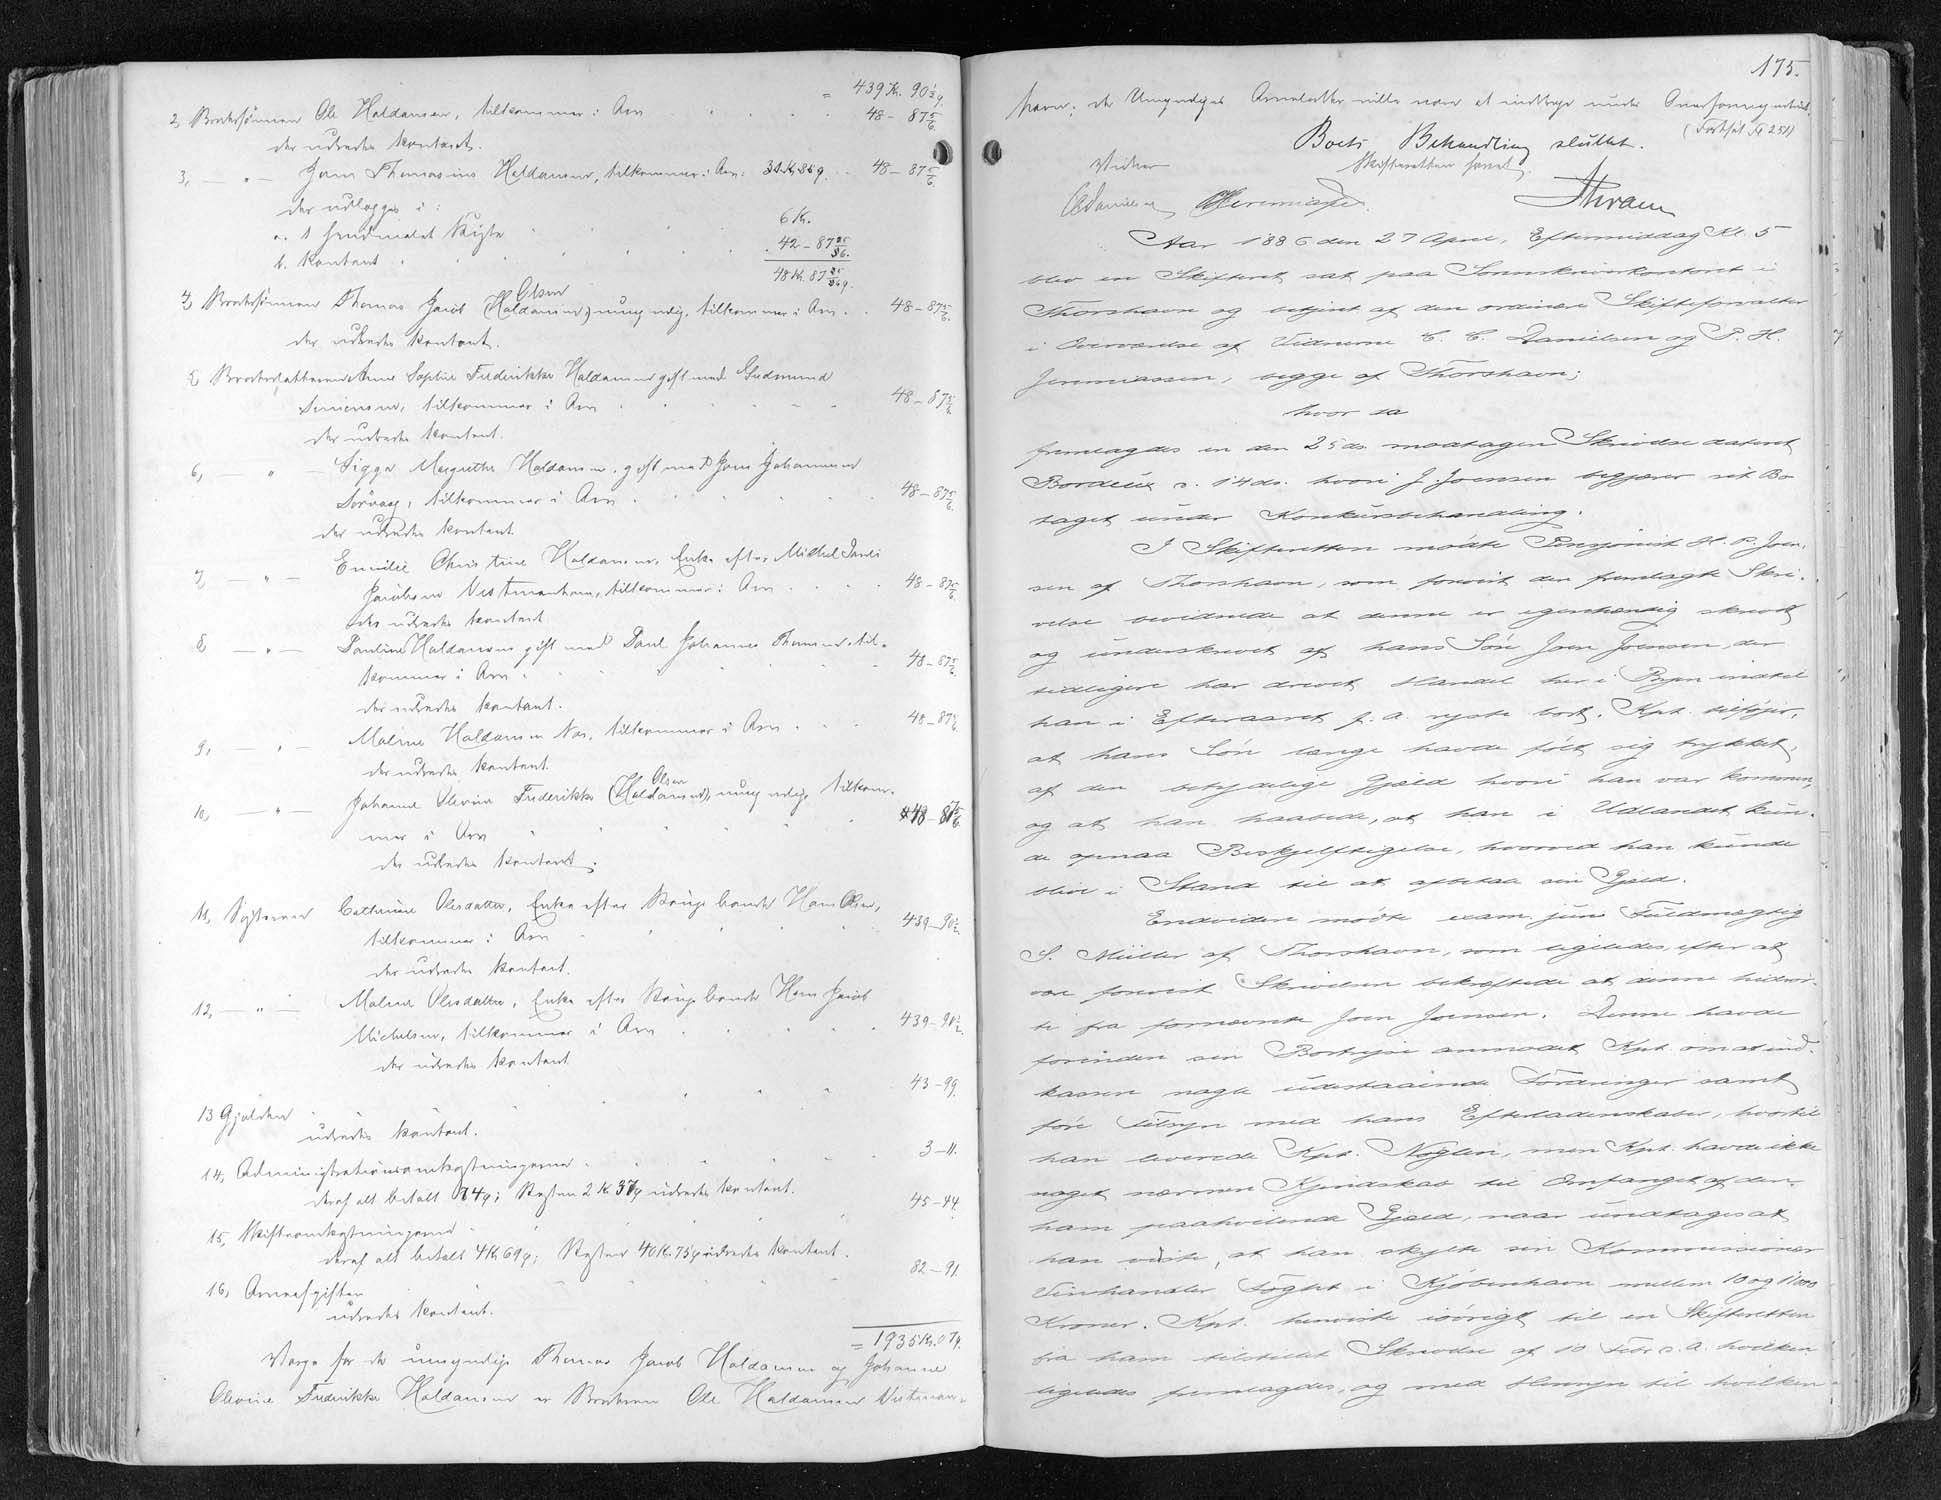 = 439 Kr. 90½ ø.
2, Brodersønnen Ole Haldansen, tilkommer i Arv 48 - 87 5/6.
der udredes kontant.
3, — " — Joen Thomasius Haldansen, tilkommer i Arv: 48 - 87 5/6.
der udlægges i:
a. 1 Skifte 6 Kr.
b. kontant 42 - 87 25/36.
48 Kr. 87 25/36 ø.
Olsen
4, Brodersønnen Thomas Jacob (Haldansen) umyndig, tilkommer i Arv 48 - 87 5/6.
der udredes kontant.
5, Broderdatteren Anne Sophie Frederikke Haldansen gift med Gudmund
Simonsen, tilkommer i Arv 48 - 87 5/6
der udredes kontant.
6, — " — Sigga Margrethe Haldansen, gift med Joen Johannesen
Sørvaag, tilkommer i Arv 48 - 87 5/6.
der udredes kontant.
7, — " — Emilie Christine Haldansen, Enke efter Michel
Jacobsen Vestmanhavn, tilkommer i Arv 48 - 87 5/6.
der udredes kontant
8, — " — Pauline Haldansen gift med Poul Johannes Thomsen, til-
kommer i Arv 48 - 87 5/6.
der udredes kontant.
9, — " — Malene Haldansen Næs, tilkommer i Arv 48 - 87 5/6.
der udredes kontant.
Olsen
10, — " — Johanne Olevine Frederikke (Haldansen), umyndig, tilkom-
mer i Arv 48 - 87 5/6
der udredes kontant.
11, Søsteren Cathrine Olesdatter, Enke efter Kongsbonde Hans Olsen,
tilkommer i Arv 439 - 90½
der udredes kontant.
12, — " — Malene Olesdatter, Enke efter Kongsbonde Hans Jacob
Michelsen, tilkommer i Arv 439 - 90½
der udredes kontant
13 Gjælden 43 - 99
udredes kontant.
14, Administrationsomkostningerne 3 - 11.
deraf alt betalt 74 ø; Resten 2 Kr. 37 ø udredes kontant.
15, Skifteomkostningerne 45 - 44
deraf alt betalt 4 Kr 69 ø; Resten 40 Kr. 75 ø udredes kontant.
16, Arveafgiften 82 - 91
udredes kontant.
= 1935 Kr. 07 ø.
Værge for de umyndige Thomas Jacob Haldansen og Johanne
Olevine Frederikke Haldansen er Broderen Ole Haldansen Vestman-
175.
havn; de Umyndiges Arvelodder ville være at indtage under Overformynderiet.
(Fortsat
Boets Behandling sluttet.
Vidner Skifteretten hævet
CDanielsen PHJeremiassen
Aar 1886 den 27 April, Eftermiddag Kl. 5
blev en Skifteret sat paa Sorenskriverkontoret i
Thorshavn og betjent af den ordinære Skifteforvalter
i Overværelse af Vidnerne C. C. Danielsen og P. H.
Jeremiassen, begge af Thorshavn;
hvor da
fremlagdes en den 25 ds. modtagen Skrivelse dateret
Bordeaux d. 14 ds. hvori J. Joensen begjærer sit Bo
taget under Konkursbehandling.
I Skifteretten mødte Pensjonist H. P. Joen-
sen af Thorshavn, som forevist den fremlagte Skri-
velse bevidnede at denne er egenhændig skrevet
og underskrevet af hans Søn Joen Joensen, der
tidligere har drevet Handel her i Byen indtil
han i Efteraaret f. a. rejste bort. Kpt. tilføjer,
at hans Søn længe havde følt sig trykket
af den betydelige Gjæld hvori han var kommen,
og at han haabede, at han i Udlandet kun-
de opnaa Beskjæftigelse, hvorved han kunde
blive i Stand til at afbetale sin Gjæld.
Endvidere mødte exam. juris Fuldmægtig
S. Müller af Thorshavn, som ligeledes, efter at
være forevist Skrivelsen bekræftede at denne hidrør-
te fra fornævnte Joen Joensen. Denne havde
forinden sin Bortrejse anmodet Kpt. om at ind-
kassere nogle udestaaende Fordringer samt
føre Tilsyn med hans Efterladenskaber, hvortil
han leverede Kpt. Nøglen, men Kpt. havde ikke
noget nærmere Kjendskab til Omfanget af den
ham paahvilende Gjæld, naar undtages at
han vidste, at han skyldte sin Kommissionær
Vinhandler Føght i Kjøbenhavn mellem 10 og 11000
Kroner. Kpt. henviste iøvrigt til en Skifteretten
fra ham tilstillet Skrivelse af 10 Febr. d. A. hvilken
ligeledes fremlagdes, og med Hensyn til hvilken